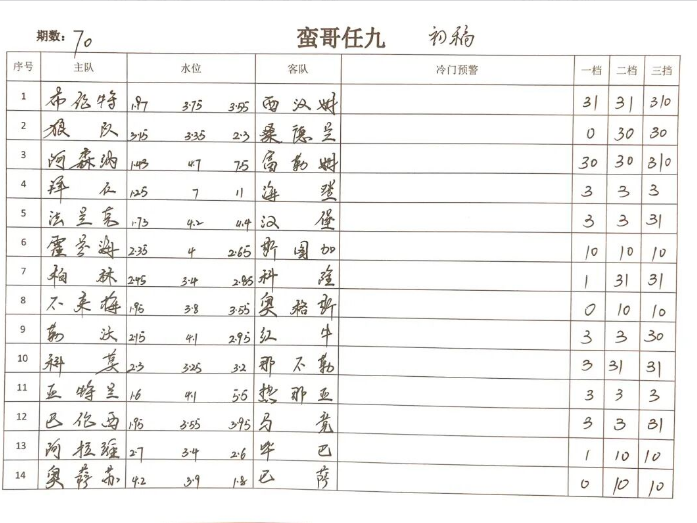 期数: 70 蛮哥任九 初稿
序号 主队 水位 客队 冷门预警 一档 二档 三档
1 布伦特 1.97 3.75 3.55 西汉姆 31 31 310
2 狼队 3.15 3.35 2.3 桑德兰 0 30 30
3 阿森纳 1.43 4.7 7.5 富勒姆 30 30 310
4 拜仁 1.25 7 11 海登 3 3 3
5 法兰克 1.73 4.2 4.4 汉堡 3 3 31
6 霍芬海 2.35 4 2.65 斯图加 10 10 10
7 柏林 2.45 3.4 2.85 科隆 1 31 31
8 不来梅 1.95 3.8 3.55 奥格斯 0 10 10
9 勒沃 2.15 4.1 2.95 红牛 3 3 30
10 科莫 2.3 3.25 3.2 那不勒 3 31 31
11 亚特兰 1.6 4.1 5.5 热那亚 3 3 3
12 巴伦西 1.95 3.55 3.95 马竞 3 3 31
13 阿拉维 2.7 3.4 2.6 毕巴 1 10 10
14 奥萨苏 4.2 3.9 1.8 巴萨 0 10 10